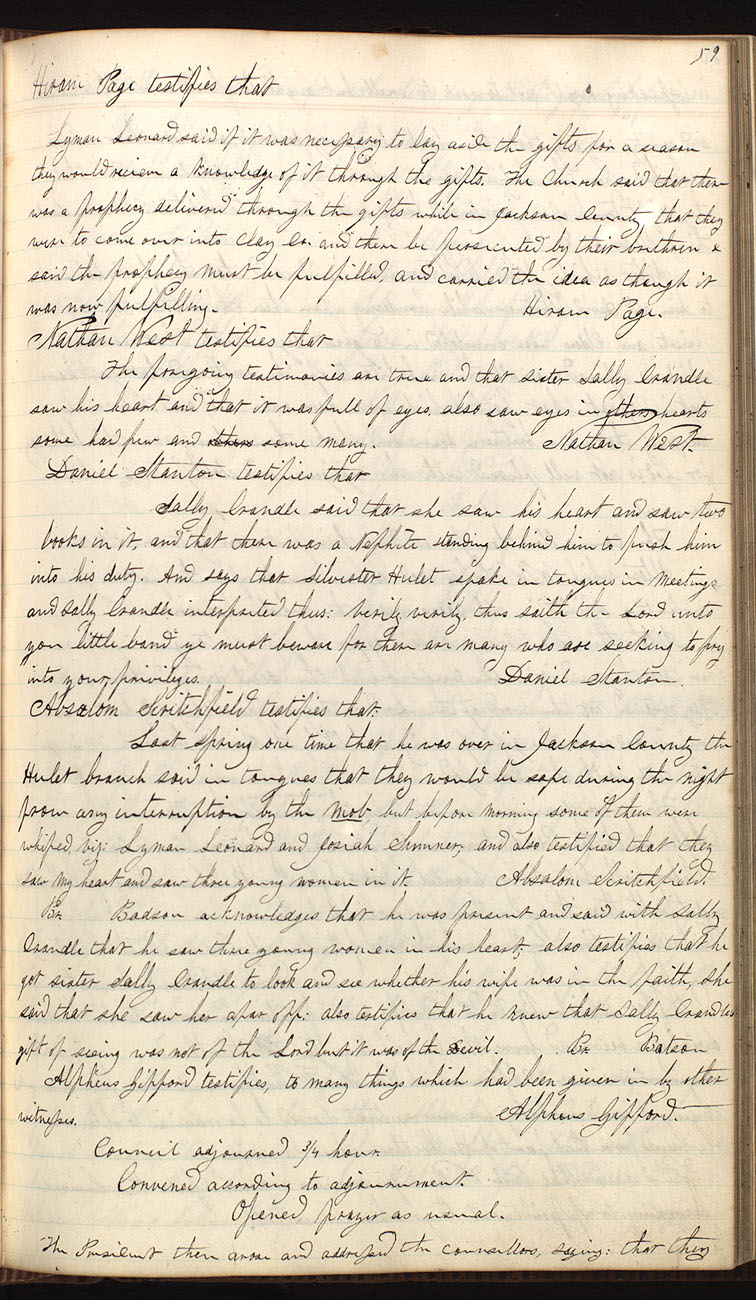 59
Hiram Page testifies that
Lyman Leonard said if it was necessary to lay aside the gifts for a season
they would recieve a knowledge of it through the gifts. The Church said that there
was a prophecy delivered through the gifts while in Jackson County, that they
were to come over into Clay Co. and there be persecuted by their brethren &
said the prophecy must be fulfilled, and carried the idea as though it
was now fulfilling. Hiram Page.
Nathan West testifies that
The foregoing testimonies are true and that sister Sally Crandle
saw his heart and that it was full of eyes, also saw eyes in other hearts
some had few and others some many. Nathan West.
Daniel Stanton testifies that
Sally Crandle said that she saw his heart and saw two
books in it, and that there was a Nephite standing behind him to push him
into his duty. And says that Silvester Hulet spake in tongues in meetings
and Sally Crandle interpreted thus: verily, verily, thus saith the Lord unto
you little band ye must beware for there are many who are seeking to pry
into your privileges. Daniel Stanton.
Absalom Scritchfield testifies that:
Last spring one time that he was over in Jackson County the
Hulet branch said in tongues that they would be safe during the night
from any interruption by the mob, but before morning some of them were
whiped, viz: Lyman Leonard and Josiah Sumner, and also testified that they
saw my heart and saw three young women in it. Absalom Scritchfield.
Br. Badson acknowledges that he was present and said with Sally
Crandle that he saw three young women in his heart; also testifies that he
got sister Sally Crandle to look and see whether his wife was in the faith, she
said that she saw her afar off: also testifies that he knew that Sally Crandles
gift of seeing was not of the Lord but it was of the Devil. Br. Batson
Alpheus Gifford testifies, to many things which had been given in by other
witnesses. Alpheus Gifford.
Council adjourned 3/4 hour.
Convened according to adjournment.
Opened prayer as usual.
The President then arose and addressed the counsellors, saying: that they